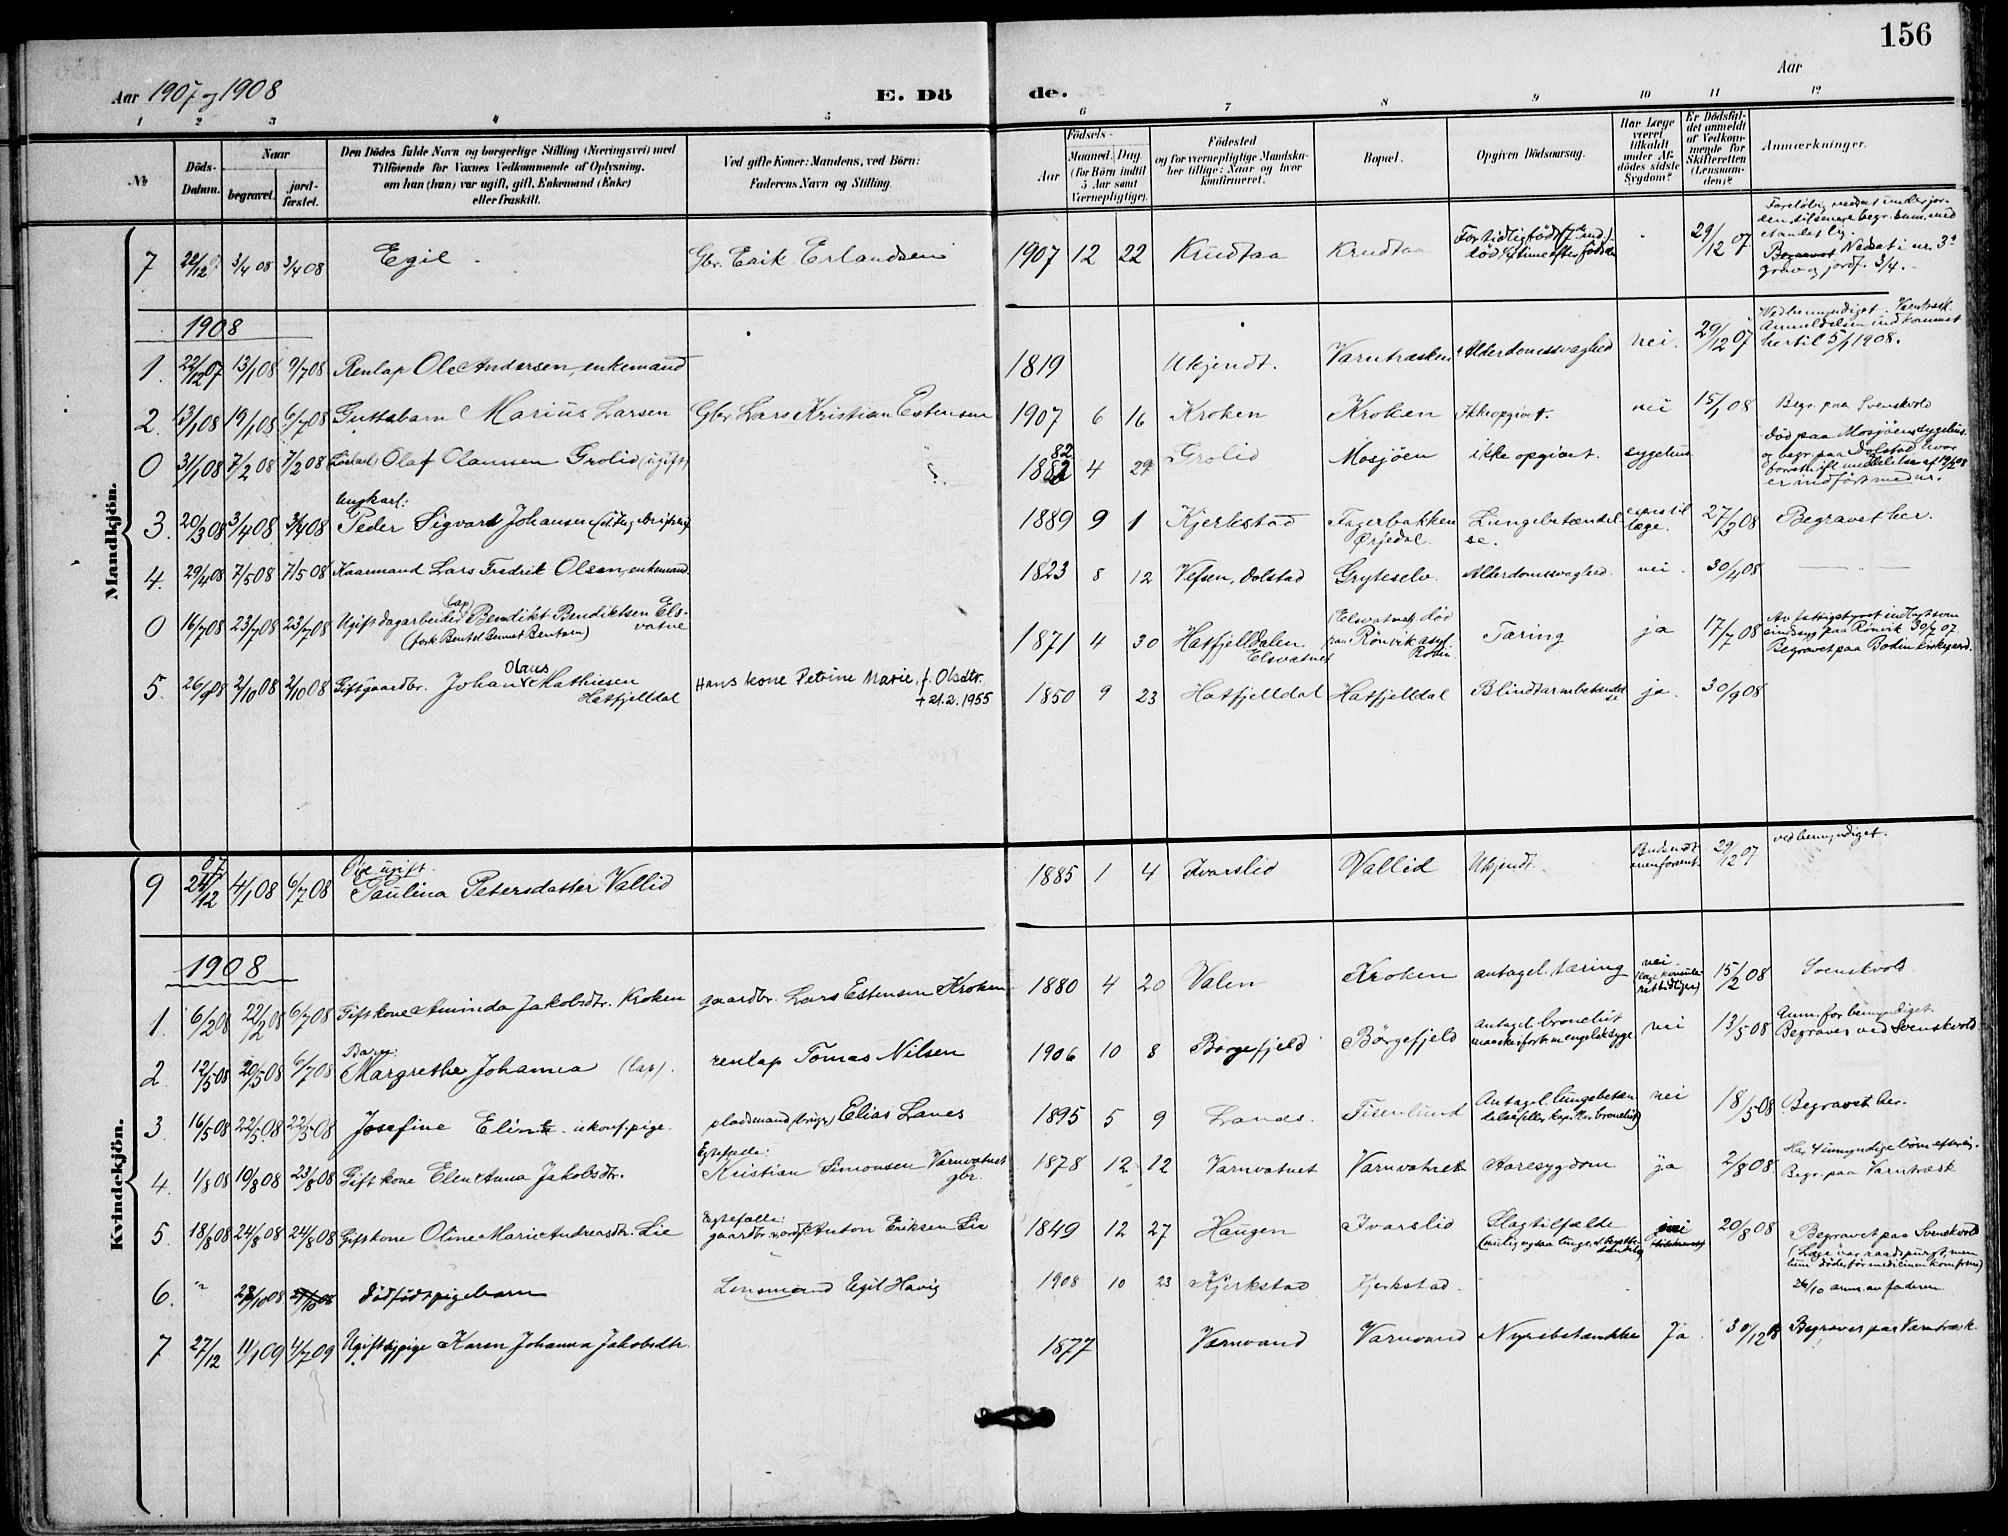 156
Aar 1907 og 1908
E. Dö
de.
Aar
1 2 3 4 5 6 7 8 9 10 11 12
№
Döds-Datum.
Naar
begravet.
jord-fæstet.
Den Dödes fulde Navn og borgerlige Stilling (Næringsvei) med
Tilföiende for Voxnes Vedkommende af Oplysning,
om han (hun) var ugift, gift, Enkemand (Enke)
eller fraskilt.
Ved gifte Koner: Mandens, ved Börn:
Faderens Navn og Stilling.
Födsels-
Aar
Maaned. Dag
(for Börn indtil
5 Aar samt
Værnepligtige).
Födested
og for værnepligtige Mandska-
ber tillige: Naar og hvor
konfirmeret.
Bopæl.
Opgiven Dödsaarsag.
Har Læge
været
tilkaldt
under Af-
dödes sidste
Sygdom?
Er Dödsfal-
det anmeldt
af Vedkom-
mende for
Skifteretten
(Lensman-
den)?
Anmærkninger.
Mandkjön.
7 22/12 07 3/4 08 3/4 08 Egil Gbr. Erik Erlandsen 1907 12 22 Krudtaa Krudtaa 29/12 07
Begravet Nedsat i nr. 3s
grav og jordf. 3/4.
1908
1. 22/12 07 13/1 08 9/7 08 Renlap Ole Andersen, enkemand 1819 Ukjendt. Varntræsken Alderdomssvaghed nei. 29/12 07
Anmeldelsen indkommet
hertil 5/1 1908.
2. 13/1 08 19/1 08 6/7 08 Guttebarn Marius Larsen Gbr. Lars Kristian Estensen 1907 6 16 Kroken Kroken Ikke opgivet. nei 15/1 08 Begr. paa Svenskvold
0 31/1 08 7/2 08 7/2 08 Olaf Olaussen Grolid (ugift) 1882 82 4 29 Grolid Mosjøen ikke opgivet. sygehus
død paa Mosjøens sygehus
og begr. paa Dolstad hvor
3. 20/3 08 3/4 08 3/4 08 Ungkarl: Peder Sigvart Johansen 1889 9 1 Kjerkstad Fagerbakken Ørjedal Lungebetændelse. 27/3 08 Begravet her.
4. 29/4 08 7/5 08 7/5 08 Kaarmand Lars Fredrik Olsen, enkemand 1823 8 12 Vefsen, Dolstad Gryteselv Alderdomssvaghed. nei. 30/4 08
0 16/7 08 23/7 08 23/7 08 Ugift dagarbeider (lap) Bendikt Bendiktsen Elsvatne 1871 4 30 Hatfjelldalen Elsvatnet død paa Rønvik asyl Tæring ja 17/7 08
sindssyg paa Rønvik 30/7 07.
Begravet paa Bodin kirkegaard.
5. 26/9 08 2/10 08 2/10 08 Gift gaardbr. Johan Olaus Mathiesen Hatfjelldal Hans kone Petrine Marie, f. Olsdtr. + 21.2.1955 1850 9 23 Hatfjelldal Hatfjelldal Blindtarmbetændelse ja. 30/9 08
Kvindekjön.
9 24/12 07 4/1 08 6/7 08 Pige ugift. Paulina Petersdatter Vallid 1885 1 4 Ivarslid Vallid Ukjendt. 29/12 07 ved bemyndiget.
1908
1. 6/2 08 22/2 08 6/7 08 Gift kone Aminda Jakobsdtr. Kroken gaardbr. Lars Estensen Kroken 1880 4 20 Valen Kroken antagel. tæring nei. (læge konsuleret tidligere) 15/2 08 Svenskvold
2. 12/5 08 20/5 08 6/7 08 Barn: Margrethe Johanna (lap). renlap Tomas Nilsen 1906 10 8 Børgefjeld Børgefjeld antagel. bronchit nei 13/5 08 Anm. for bemyndiget.
Begraves ved Svenskvold
3. 16/5 08 22/5 08 22/5 08 Josefine Eline ukonf. pige. pladsmand Elias Lanes 1895 5 9 Lanes. Tisenlund Antagel. lungebetændelse (eller kapillær bronchit) nei 18/5 08 Begravet her.
4. 1/8 08 19/8 08 23/8 08 Gift kone Elen Anna Jakobsdtr. Egtefælle: Kristian Simonsen Varnvatnet gbr. 1878 12 12 Varnvatnet Varnvatnet Aaresygdom ja 2/8 08 Har 4 umyndige børn efter sig.
Begr. paa Varntræsk
5. 18/8 08 24/8 08 24/8 08 Gift kone Oline Marie Andreasdtr. Lie Egtefælle: gaardbr. Anton Eriksen Lie 1849 12 27 Haugen Ivarslid Slagtilfælde nei 20/8 08 Begravet paa Svenskvold
(Læge var raadspurgt, men
hun døde før medicinen kom frem)
6. " 28/10 08 dødfødt pigebarn Lensmand Egil Havig 1908 10 23 Kjerkstad Kjerkstad. 26/10 anm. av faderen
7 27/12 11/1 09 4/7 09 Ugift pige Karen Johanna Jakobsdtr. 1877 Varnvand Varnvand Nyrebetændelse Ja. 30/12 08 Begraves paa Varntræsk.